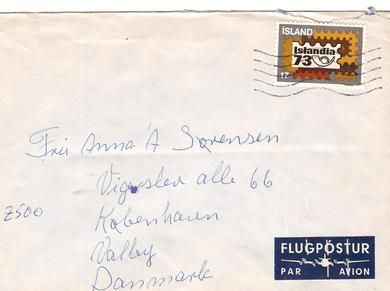 ÍSLAND
Islandia
73
17
Frú Anna Á Sorensen
Vigerslev alle 66
2500
København
Valby
Danmark
FLUGPÓSTUR
PAR AVION